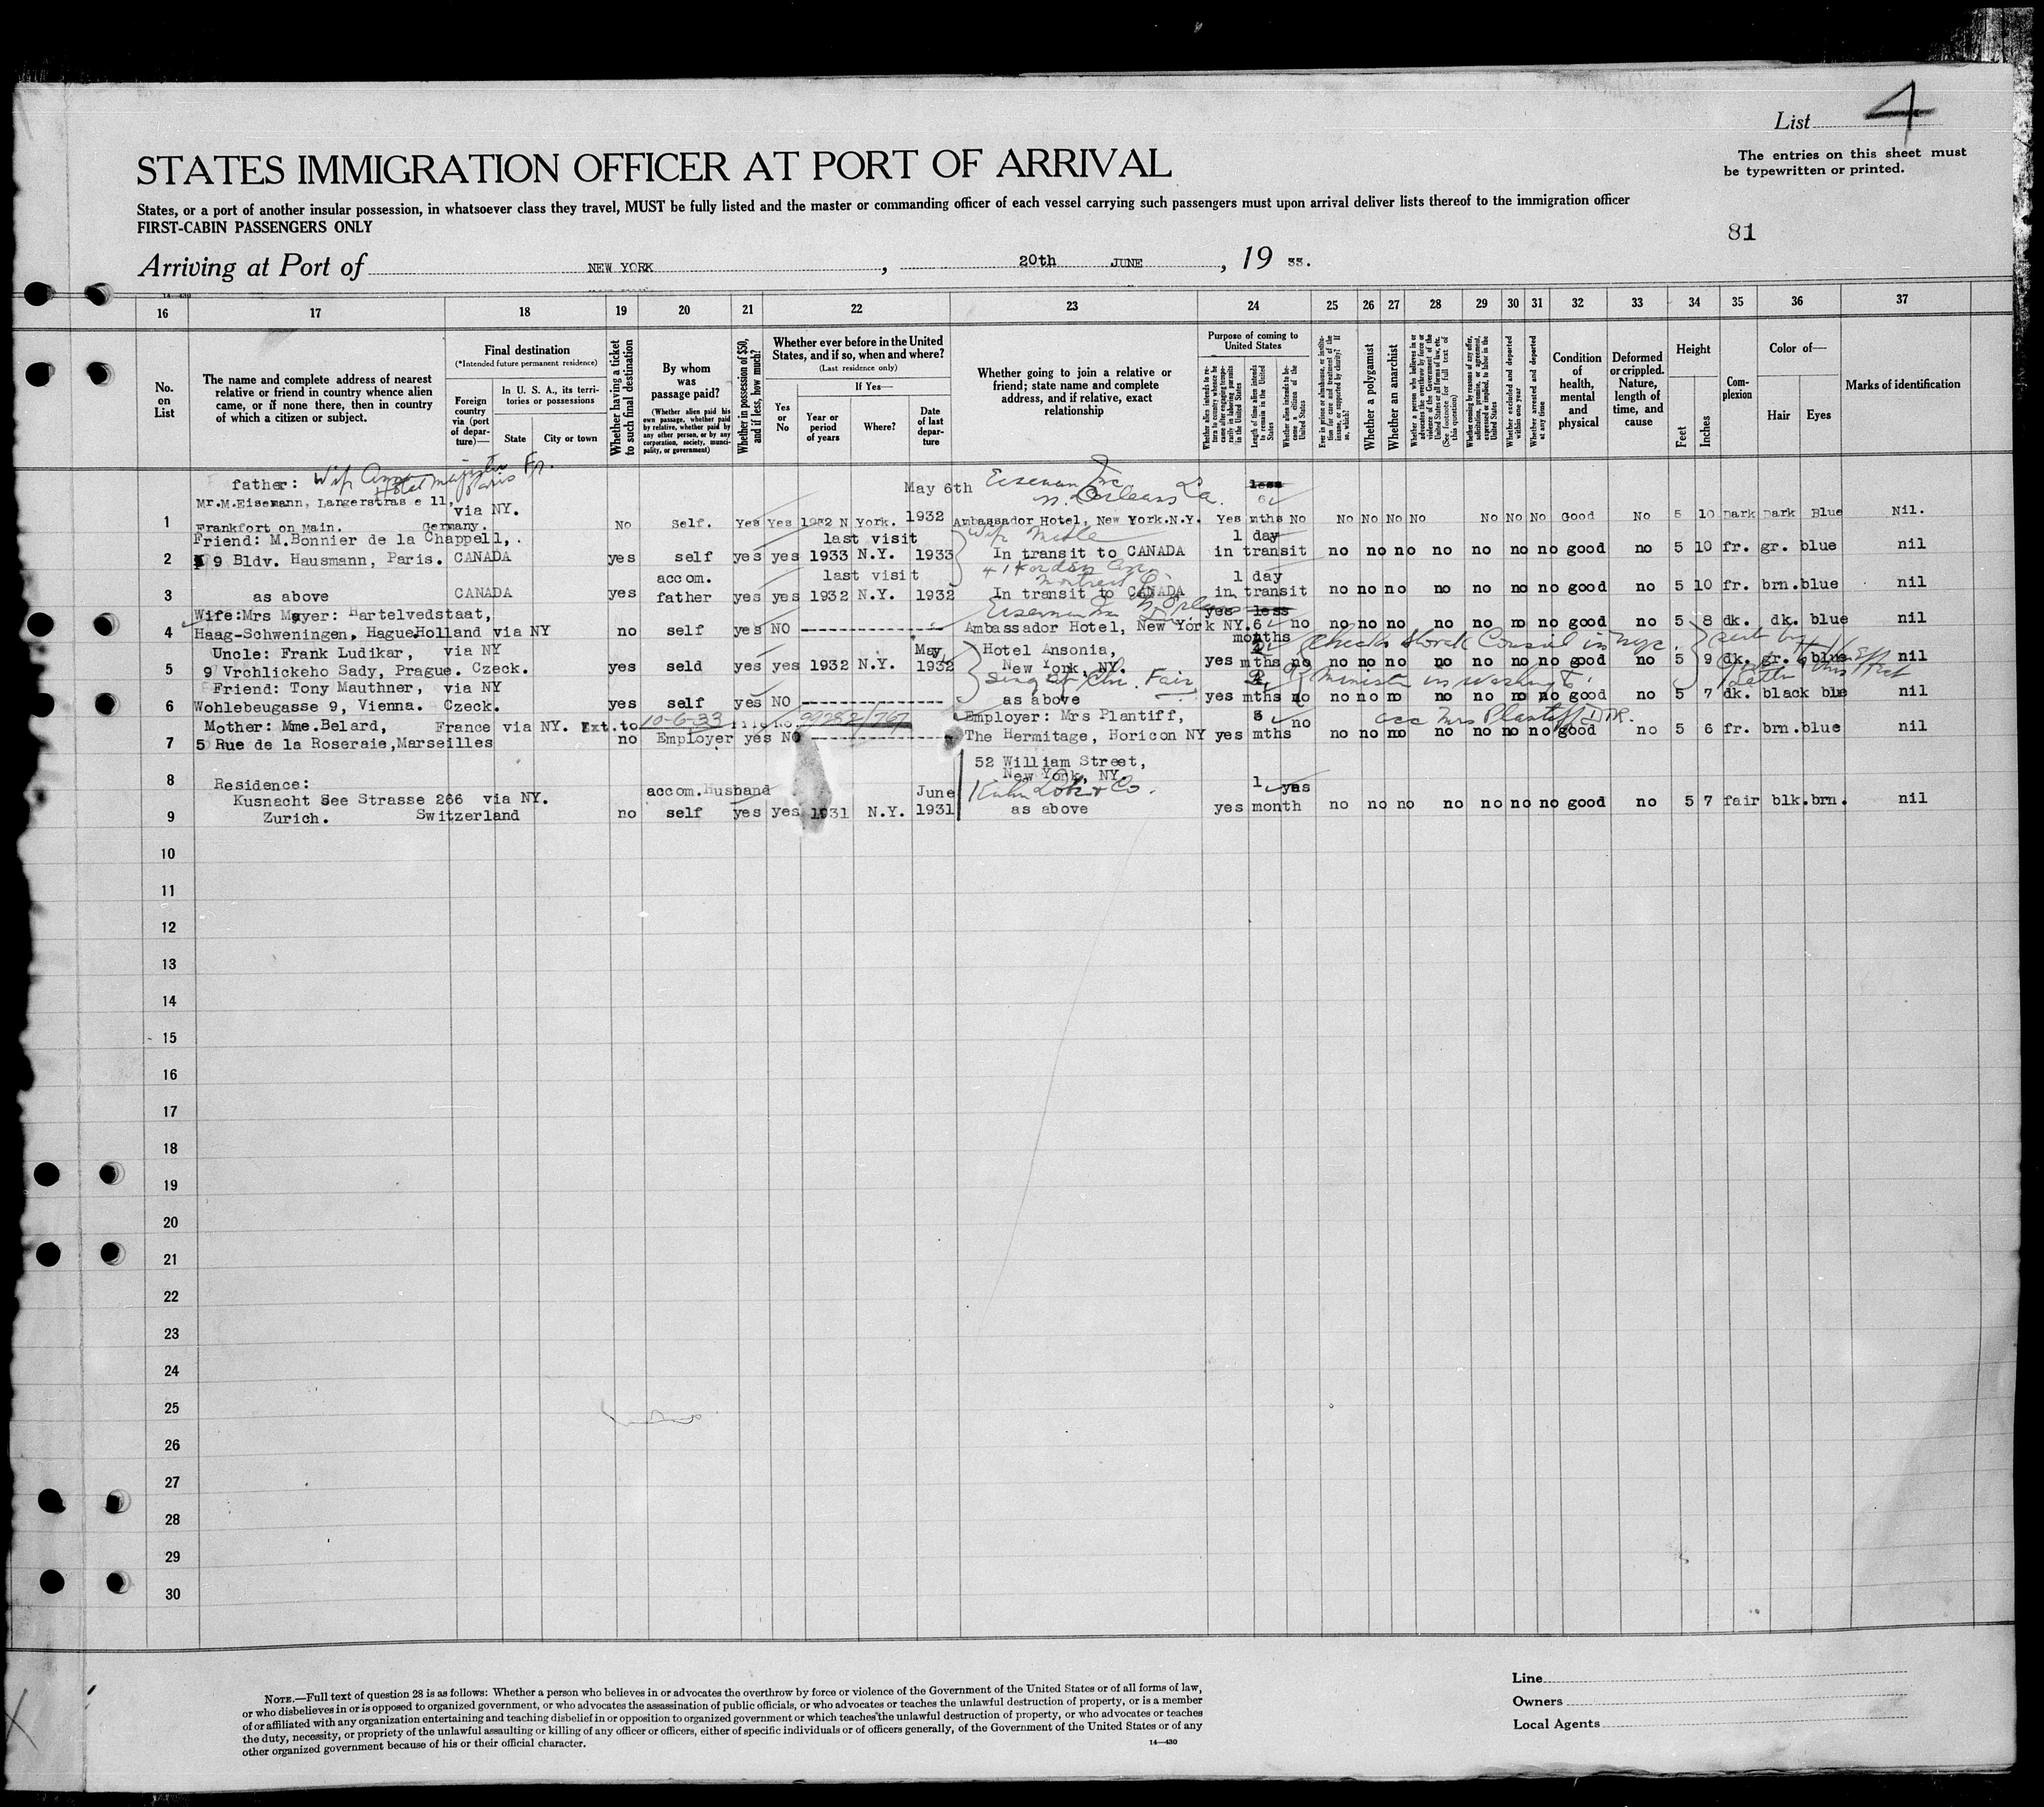 List 4
The entries on this sheet must
be typewritten or printed.
STATES IMMIGRATION OFFICER AT PORT OF ARRIVAL
States, or a port of another insular possession, in whatsoever class they travel, MUST be fully listed and the master or commanding officer of each vessel carrying such passengers must upon arrival deliver lists thereof to the immigration officer
FIRST-CABIN PASSENGERS ONLY
81
Arriving at Port of NEW YORK, 20th JUNE, 19 33.
14—430
16 17 18 19 20 21 22 23 24 25 26 27 28 29 30 31 32 33 34 35 36 37
No. on List
The name and complete address of nearest relative or friend in country whence alien came, or if none there, then in country of which a citizen or subject.
Final destination
(*Intended future permanent residence)
Foreign country via (port of departure)—
In U. S. A., its territories or possessions
State
City or town
Whether having a ticket to such final destination
By whom was passage paid?
(Whether alien paid his own passage, whether paid by relative, whether paid by any other person, or by any corporation, society, municipality, or government)
Whether in possession of $50, and if less, how much?
Whether ever before in the United States, and if so, when and where?
(Last residence only)
Yes or No
If Yes—
Year or period of years
Where?
Date of last departure
Whether going to join a relative or friend; state name and complete address, and if relative, exact relationship
Purpose of coming to United States
Length of time alien intends to remain in the United States
Whether alien intends to become a citizen of the United States
Whether a polygamist
Whether an anarchist
Whether excluded and deported within one year
Whether arrested and deported at any time
Condition of health, mental and physical
Deformed or crippled. Nature, length of time, and cause
Height
Feet
Inches
Complexion
Color of—
Hair
Eyes
Marks of identification
father: Hotel Majestic Paris Fr.
May 6th Eiseman Inc N. Orleans La. less 6
Mr.M.Eisemann, Langerstras e 11, via NY.
1 Frankfort on Main. Germany. No Self. Yes Yes 1932 N York. 1932 Ambassador Hotel, New York.N.Y. Yes mths No No No No No No No No Good No 5 10 Dark Dark Blue Nil.
Friend: M.Bonnier de la Chappell, . last visit 1 day
2 9 Bldv. Hausmann, Paris. CANADA yes self yes yes 1933 N.Y. 1933 In transit to CANADA in transit no no no no no no no good no 5 10 fr. gr. blue nil
accom. last visit 1 day
3 as above CANADA yes father yes yes 1932 N.Y. 1932 In transit to CANADA in transit no no no no no no no good no 5 10 fr. brn. blue nil
Wife:Mrs Meyer: Hartelvedstaat, yes less
4 Haag-Schweningen, Hague.Holland via NY no self yes NO Ambassador Hotel, New York NY. 6 no no no no no no no no good no 5 8 dk. dk. blue nil
months
Uncle: Frank Ludikar, via NY May, Hotel Ansonia,
5 9 Vrchlickeho Sady, Prague. Czeck. yes seld yes yes 1932 N.Y. 1932 New York, NY. yes mths no no no no no no no no good no 5 9 dk. gr. blue nil
Friend: Tony Mauthner, via NY Sing at Chi. Fair
6 Wohlebeugasse 9, Vienna. Czeck. yes self yes NO as above yes mths no no no no no no no no good no 5 7 dk. black blue nil
Mother: Mme.Belard, France via NY. Ext.to 10-6-33 Employer: Mrs Plantiff, no
7 5 Rue de la Roseraie,Marseilles no Employer yes NO The Hermitage, Horicon NY yes mths no no no no no no no good no 5 6 fr. brn. blue nil
52 William Street,
8 New York, NY.
Residence: accom.Husband June Kuhn Loeb & Co. 1 yes
Kusnacht See Strasse 266 via NY.
9 Zurich. Switzerland no self yes yes 1931 N.Y. 1931 as above yes month no no no no no no no good no 5 7 fair blk. brn. nil
10
11
12
13
14
15
16
17
18
19
20
21
22
23
24
25
26
27
28
29
30
NOTE.—Full text of question 28 is as follows: Whether a person who believes in or advocates the overthrow by force or violence of the Government of the United States or of all forms of law,
or who disbelieves in or is opposed to organized government, or who advocates the assassination of public officials, or who advocates or teaches the unlawful destruction of property, or is a member
of or affiliated with any organization entertaining and teaching disbelief in or opposition to organized government or which teaches the unlawful destruction of property, or who advocates or teaches
the duty, necessity, or propriety of the unlawful assaulting or killing of any officer or officers, either of specific individuals or of officers generally, of the Government of the United States or of any
other organized government because of his or their official character.
14—430
Line
Owners
Local Agents